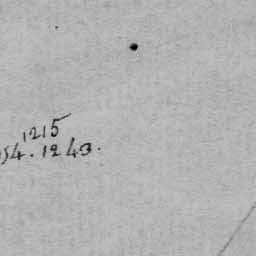 1215
54. 1243.